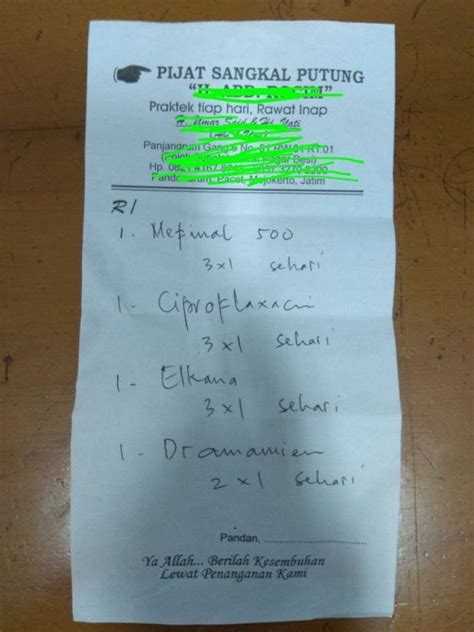 PIJAT SANGKAL PUTUNG
Praktek tiap hari, Rawat Inap
H. Umar Said & Hj. Yati
Panjangrum Gang 5 No. RT.01
Hp.
Pacet, Mojokerto, Jatim
R/
1. Mefinal 500
3x1 sehari
1. Ciproflaxacin
3x1 sehari
1 - Elkana
3x1 sehari
1 - Dramamien
2x1 sehari
Pandan, ..............................
Ya Allah... Berilah Kesembuhan
Lewat Penanganan Kami